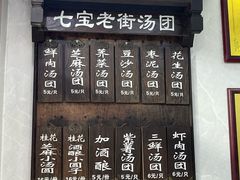 七宝老街汤团
鲜肉汤团
5元/只
芝麻汤团
5元/只
荠菜汤团
5元/只
豆沙汤团
5元/只
枣泥汤团
5元/只
花生汤团
5元/只
桂花芝麻小汤团
桂花酒酿小圆子
加酒酿
紫薯汤团
5元/只
三鲜汤团
6元/只
虾肉汤团
6元/只